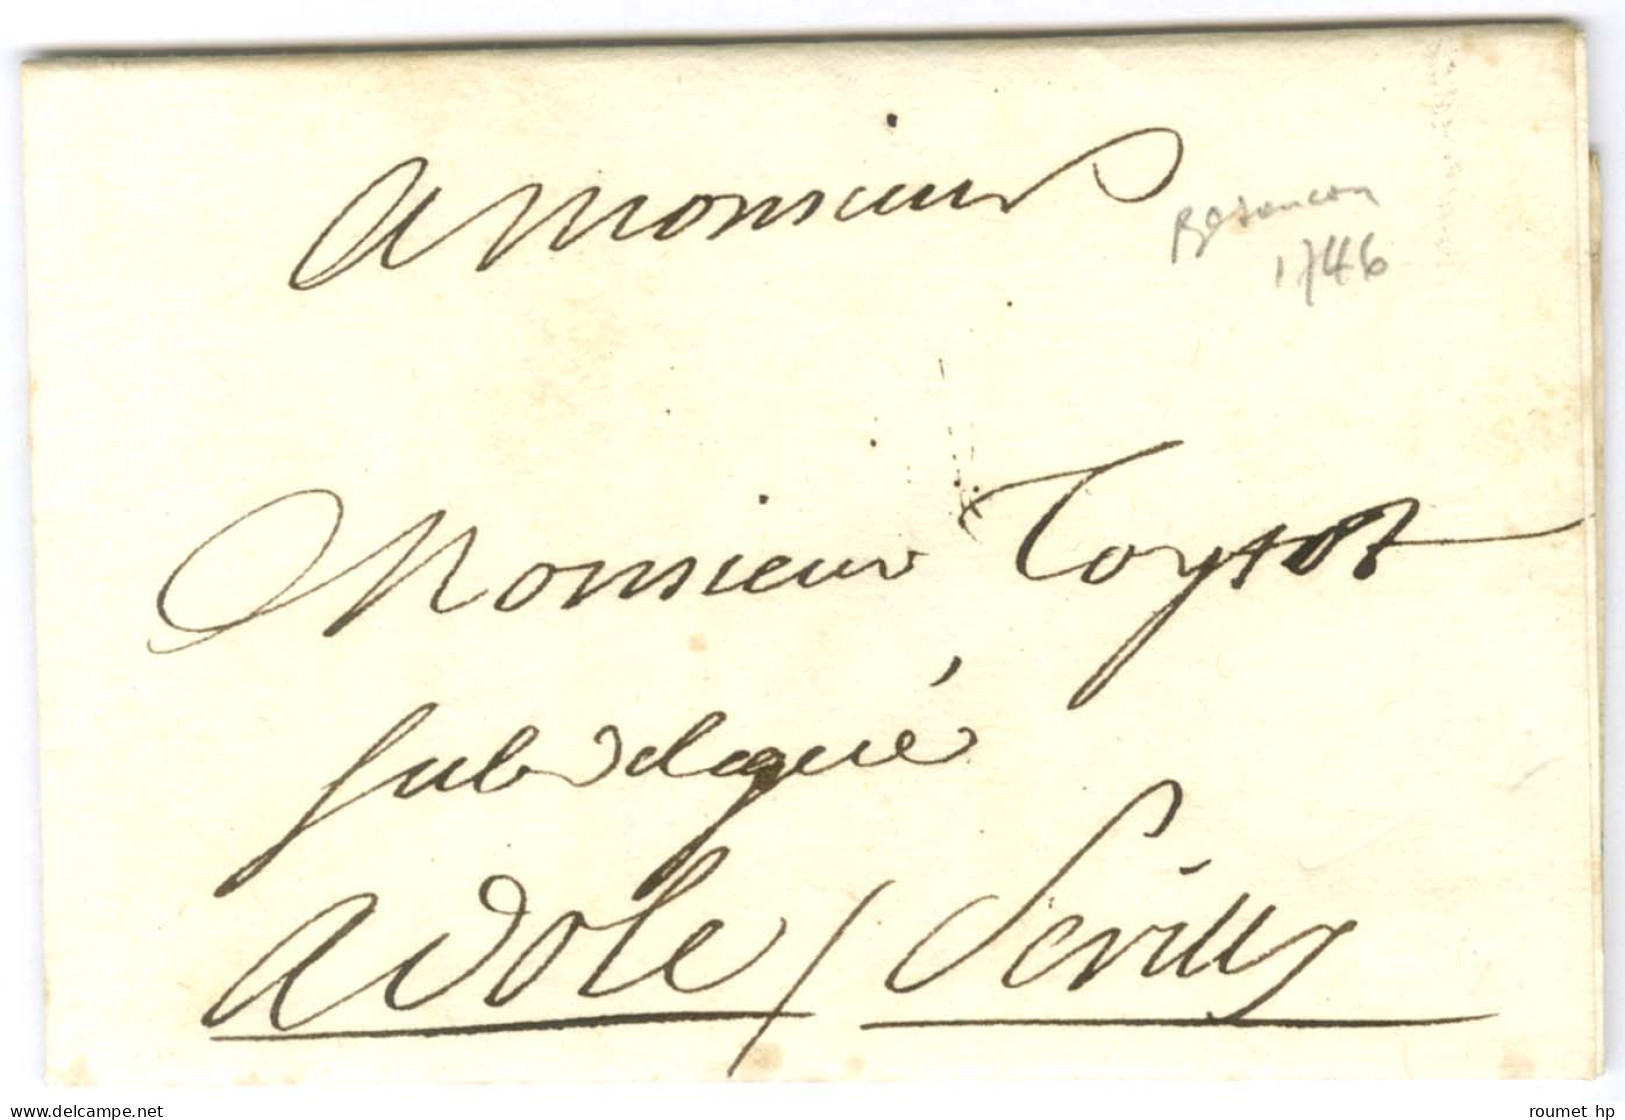 A Monsieur
Besancon
1746
Monsieur Toytot
subdelegué
A Dole / Serilly
delcampe.net
roumet hp